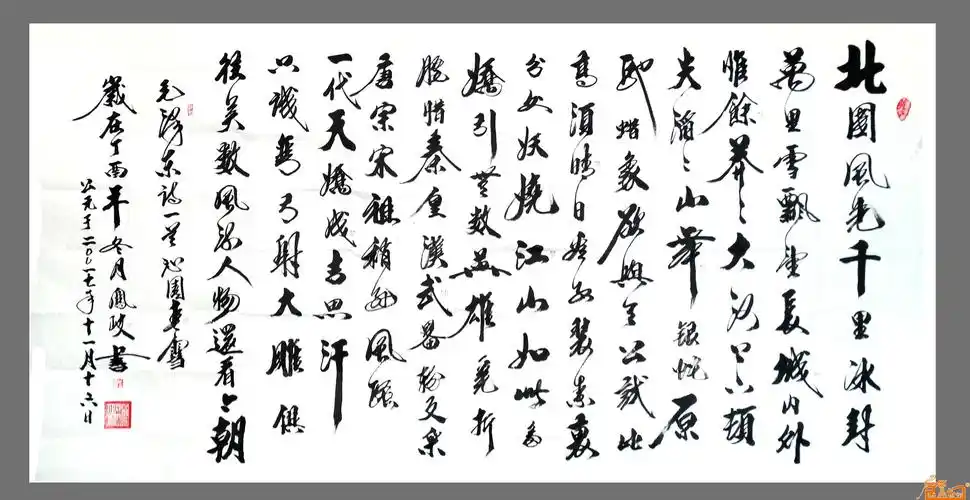 北國風光千里冰封
萬里雪飄望長城内外
惟餘莽々大河上下頓
失滔々山舞銀蛇原
馳蜡象欲與天公試比
高須晴日看紅裝素裹
分外妖嬈江山如此多
嬌引無數英雄競折
腰惜秦皇漢武畧輸文采
唐宗宋祖稍遜風騷
一代天嬌成吉思汗
只識彎弓射大雕俱
往矣數風流人物還看今朝
毛澤东詩一首沁園春雪
歲在丁酉年冬月鳳岐書
公元于二〇一七年十一月十六日